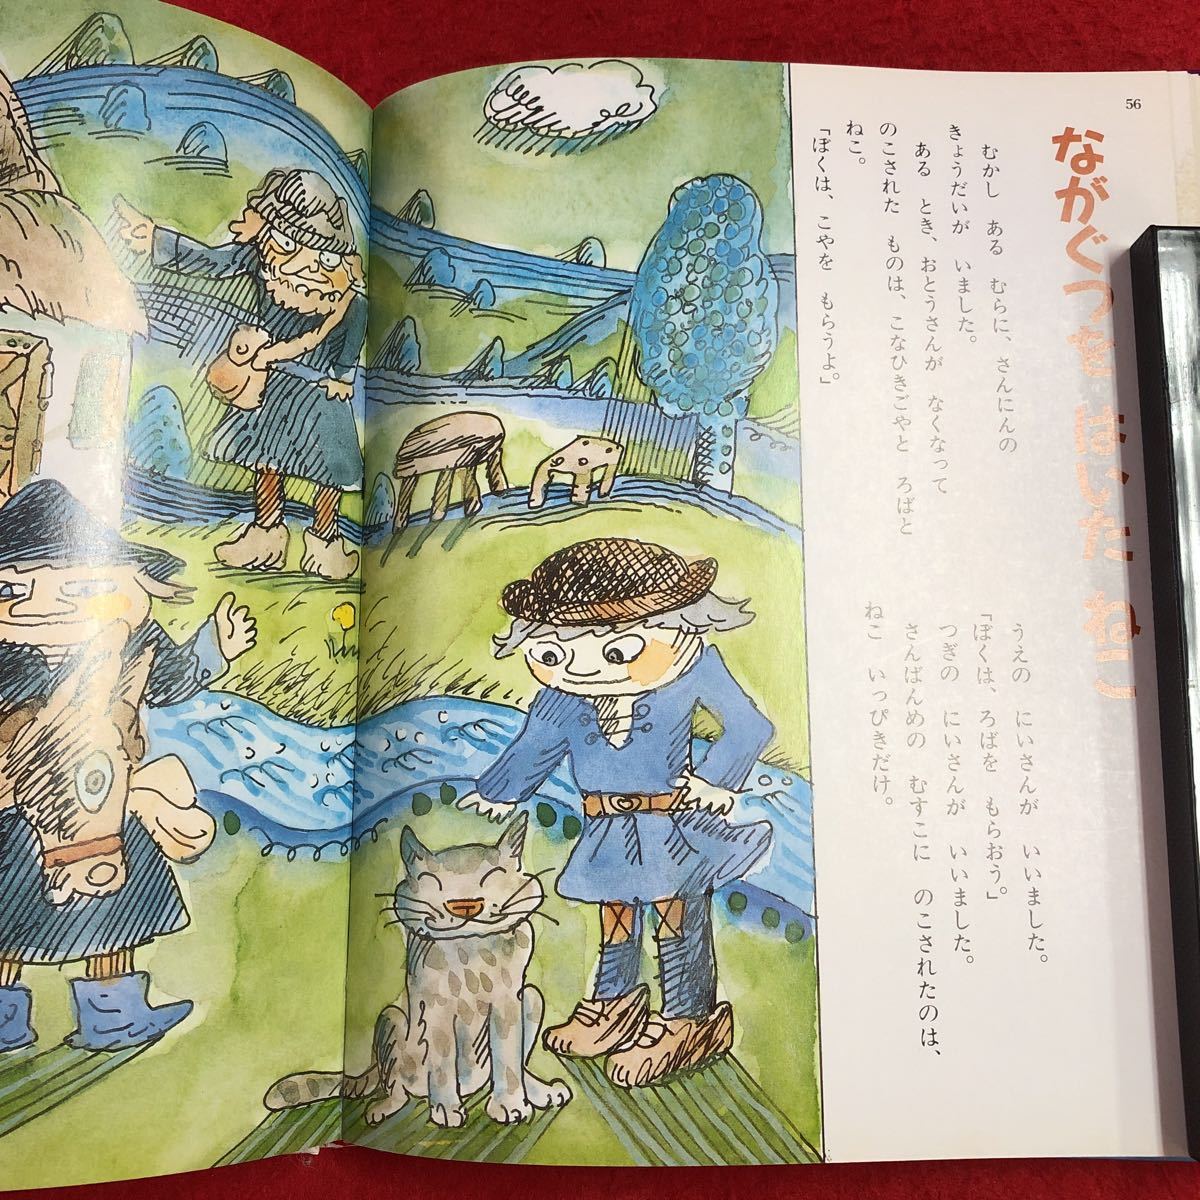 56
ながぐつを はいた ねこ
むかし ある むらに、さんにんの
きょうだいが いました。
ある とき、おとうさんが なくなって
のこされた ものは、こなひきごやと ろばと
ねこ。
「ぼくは、こやを もらうよ。」
うえの にいさんが いいました。
「ぼくは、ろばを もらおう。」
つぎの にいさんが いいました。
さんばんめの むすこに のこされたのは、
ねこ いっぴきだけ。